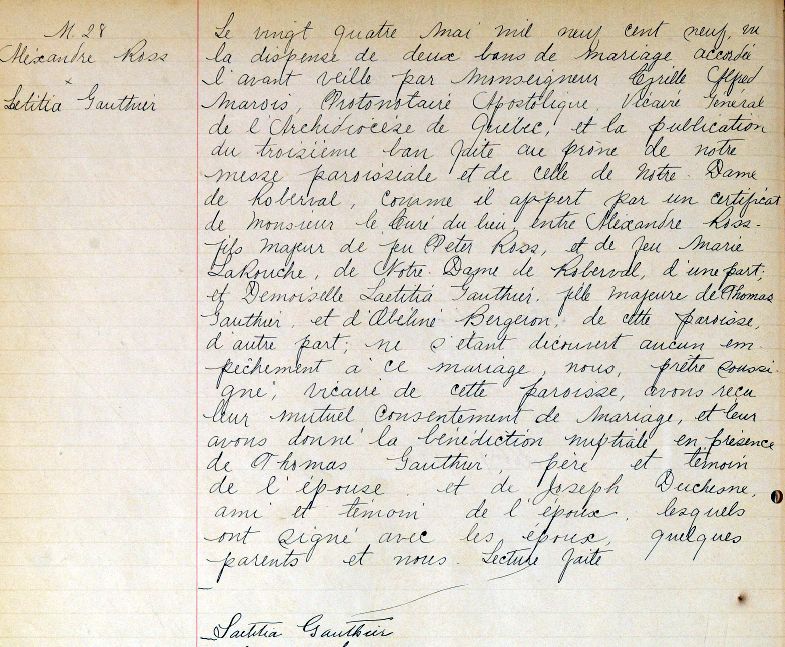 M. 28
Aléxandre Ross
x
Laetitia Gauthier
Le vingt quatre Mai mil neuf cent neuf, vu
la dispense de deux bans de mariage accordée
l'avant veille par Monseigneur Cyrille Alfred
Marois, Protonotaire Apostolique, Vicaire Général
de l'Archidiocèse de Québec, et la publication
du troisième ban faite au prône de notre
messe paroissiale et de celle de Notre-Dame
de Roberval, comme il appert par un certificat
de Monsieur le Curé du lieu, entre Aléxandre Ross-
fils majeur de feu Peter Ross, et de feu Marie
LaRouche, de Notre-Dame de Roberval, d'une part;
et Demoiselle Laetitia Gauthier, fille majeure de Thomas
Gauthier, et d'Obéline Bergeron, de cette paroisse,
d'autre part; ne s'étant découvert aucun em-
pêchement à ce mariage, nous, prêtre soussi-
gné, vicaire de cette paroisse, avons reçu
leur mutuel consentement de mariage, et leur
avons donné la bénédiction nuptiale en présence
de Thomas Gauthier, père et témoin
de l'épouse, et de Joseph Duchesne,
ami et témoin de l'époux, lesquels
ont signé avec les époux, quelques
parents et nous. Lecture faite
Laetitia Gauthier